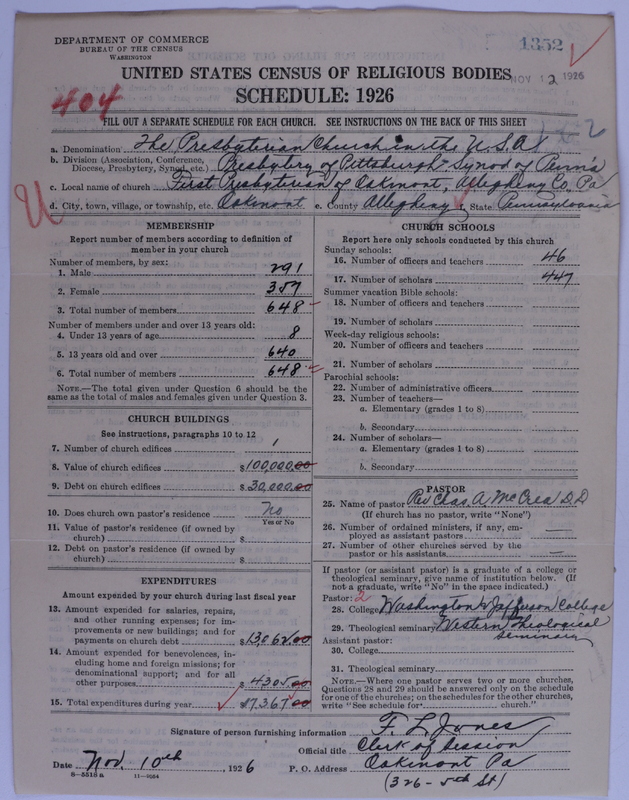 DEPARTMENT OF COMMERCE
BUREAU OF THE CENSUS
WASHINGTON
1352
NOV 12 1926
UNITED STATES CENSUS OF RELIGIOUS BODIES
SCHEDULE: 1926
404
FILL OUT A SEPARATE SCHEDULE FOR EACH CHURCH. SEE INSTRUCTIONS ON THE BACK OF THIS SHEET
a. Denomination The Presbyterian Church in the U.S.A.
b. Division (Association, Conference, Diocese, Presbytery, Synod, etc.) Presbytery of Pittsburgh - Synod of Penn'a
c. Local name of church First Presbyterian of Oakmont, Allegheny Co, Pa
d. City, town, village, or township, etc. Oakmont e. County Allegheny f. State Pennsylvania
MEMBERSHIP
Report number of members according to definition of
member in your church
Number of members, by sex:
1. Male 291
2. Female 357
3. Total number of members 648
Number of members under and over 13 years old:
4. Under 13 years of age 8
5. 13 years old and over 640
6. Total number of members 648
NOTE.—The total given under Question 6 should be the
same as the total of males and females given under Question 3.
CHURCH BUILDINGS
See instructions, paragraphs 10 to 12
7. Number of church edifices 1
8. Value of church edifices $100,000.00
9. Debt on church edifices $30,000.00
10. Does church own pastor's residence No
Yes or No
11. Value of pastor's residence (if owned by
church) $
12. Debt on pastor's residence (if owned by
church) $
EXPENDITURES
Amount expended by your church during last fiscal year
13. Amount expended for salaries, repairs,
and other running expenses; for im-
provements or new buildings; and for
payments on church debt $13062.00
14. Amount expended for benevolences, in-
cluding home and foreign missions; for
denominational support; and for all
other purposes $4305.00
15. Total expenditures during year $17,367.00
CHURCH SCHOOLS
Report here only schools conducted by this church
Sunday schools:
16. Number of officers and teachers 46
17. Number of scholars 447
Summer vacation Bible schools:
18. Number of officers and teachers
19. Number of scholars
Week-day religious schools:
20. Number of officers and teachers
21. Number of scholars
Parochial schools:
22. Number of administrative officers
23. Number of teachers—
a. Elementary (grades 1 to 8)
b. Secondary
24. Number of scholars—
a. Elementary (grades 1 to 8)
b. Secondary
PASTOR
25. Name of pastor Rev Chas. A. McCrea D.D
(If church has no pastor, write "None")
26. Number of ordained ministers, if any, em-
ployed as assistant pastors —
27. Number of other churches served by the
pastor or his assistants —
If pastor (or assistant pastor) is a graduate of a college or
theological seminary, give name of institution below. (If
not a graduate, write "No" in the space indicated.)
Pastor: 2
28. College Washington & Jefferson College
29. Theological seminary Western Theological Seminary
Assistant pastor:
30. College
31. Theological seminary
NOTE.—Where one pastor serves two or more churches,
Questions 28 and 29 should be answered only on the schedule
for one of the churches; on the schedules for the other churches,
write "See schedule for church."
Signature of person furnishing information F. L. Jones
Official title Clerk of Session
Date Nov. 10th, 1926 P. O. Address Oakmont Pa
8—5518a 11—9064
(326 - 5th St)